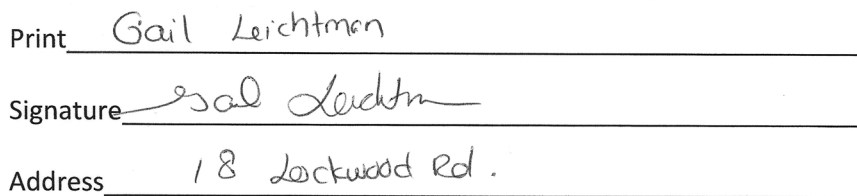 Print Gail Leichtman
Signature Gail Leichtm
Address 18 Lockwood Rd.